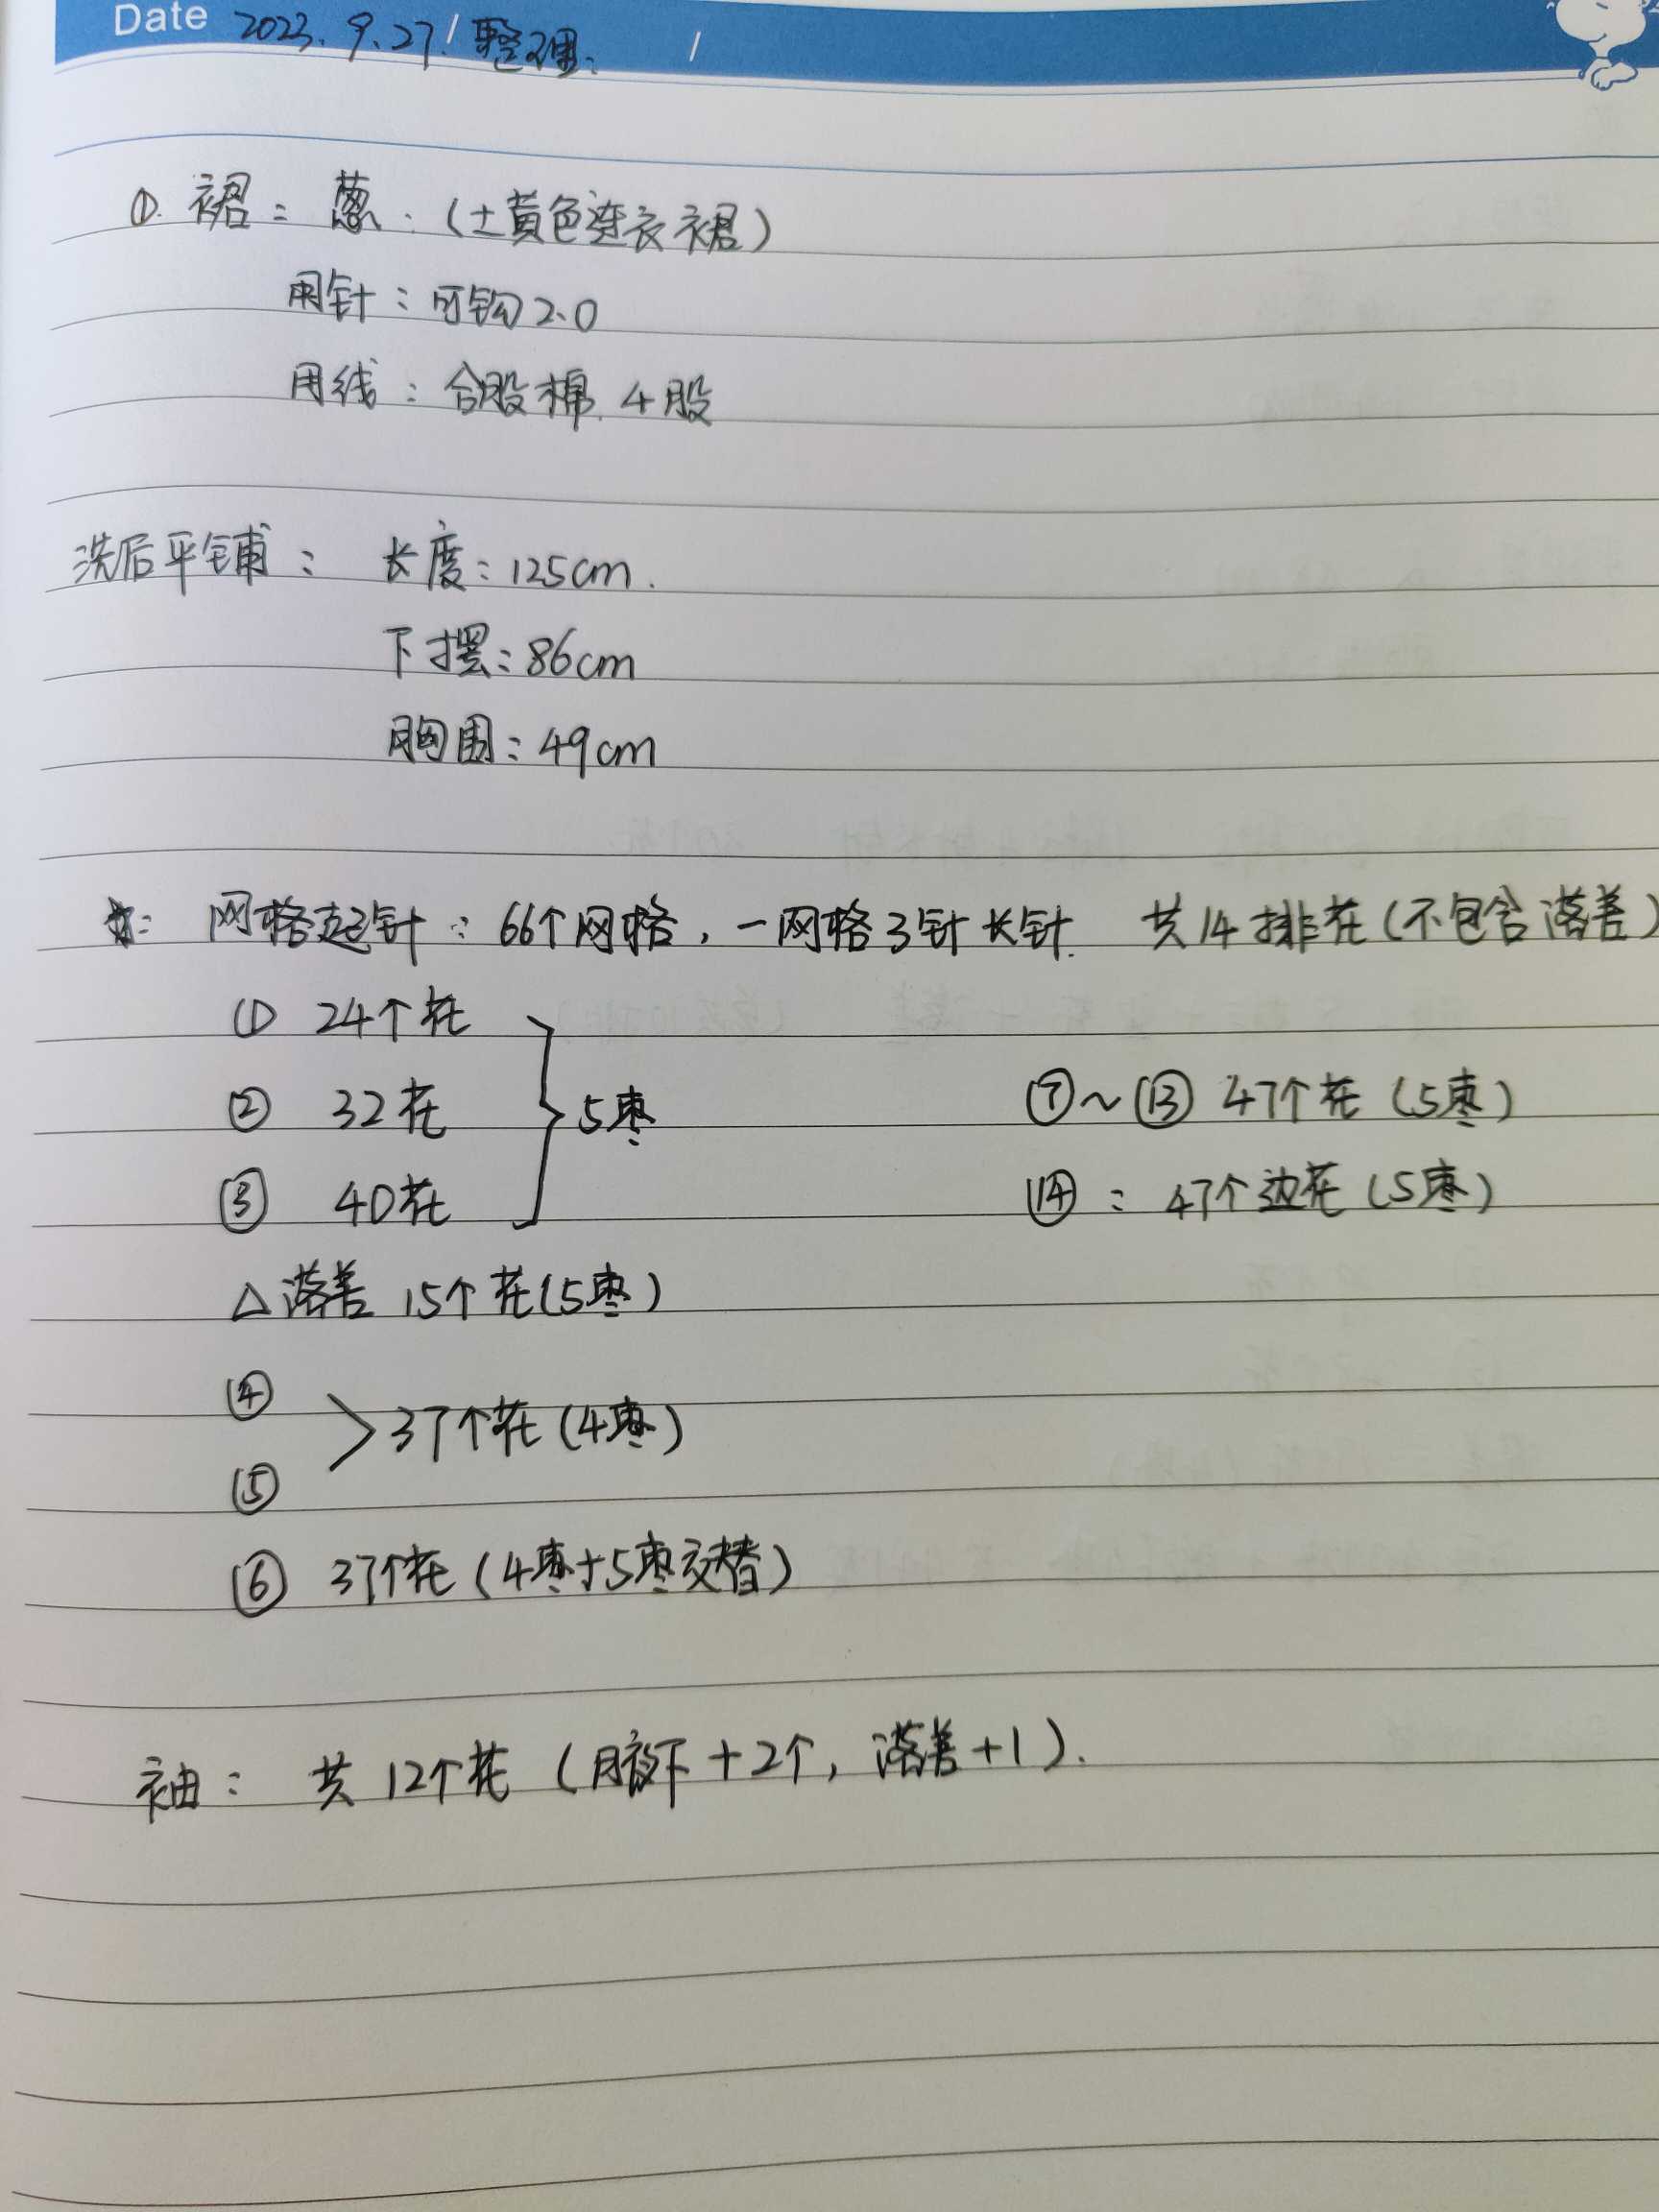 Date 2023.9.27/整理. /
①. 裙: 葱.(土黄色连衣裙)
用针: 可钩2.0
用线: 合股棉.4股
洗后平铺: 长度:125cm.
下摆:86cm
胸围:49cm
网格起针: 66个网格,一网格3针长针. 共14排花(不包含落差)
① 24个花
② 32花 5枣
③ 40花
△落差 15个花(5枣)
④
37个花(4枣)
⑤
⑥ 37个花(4枣+5枣交替)
⑦~⑬ 47个花(5枣)
⑭: 47个边花(5枣)
袖: 共12个花(腋下+2个,落差+1).